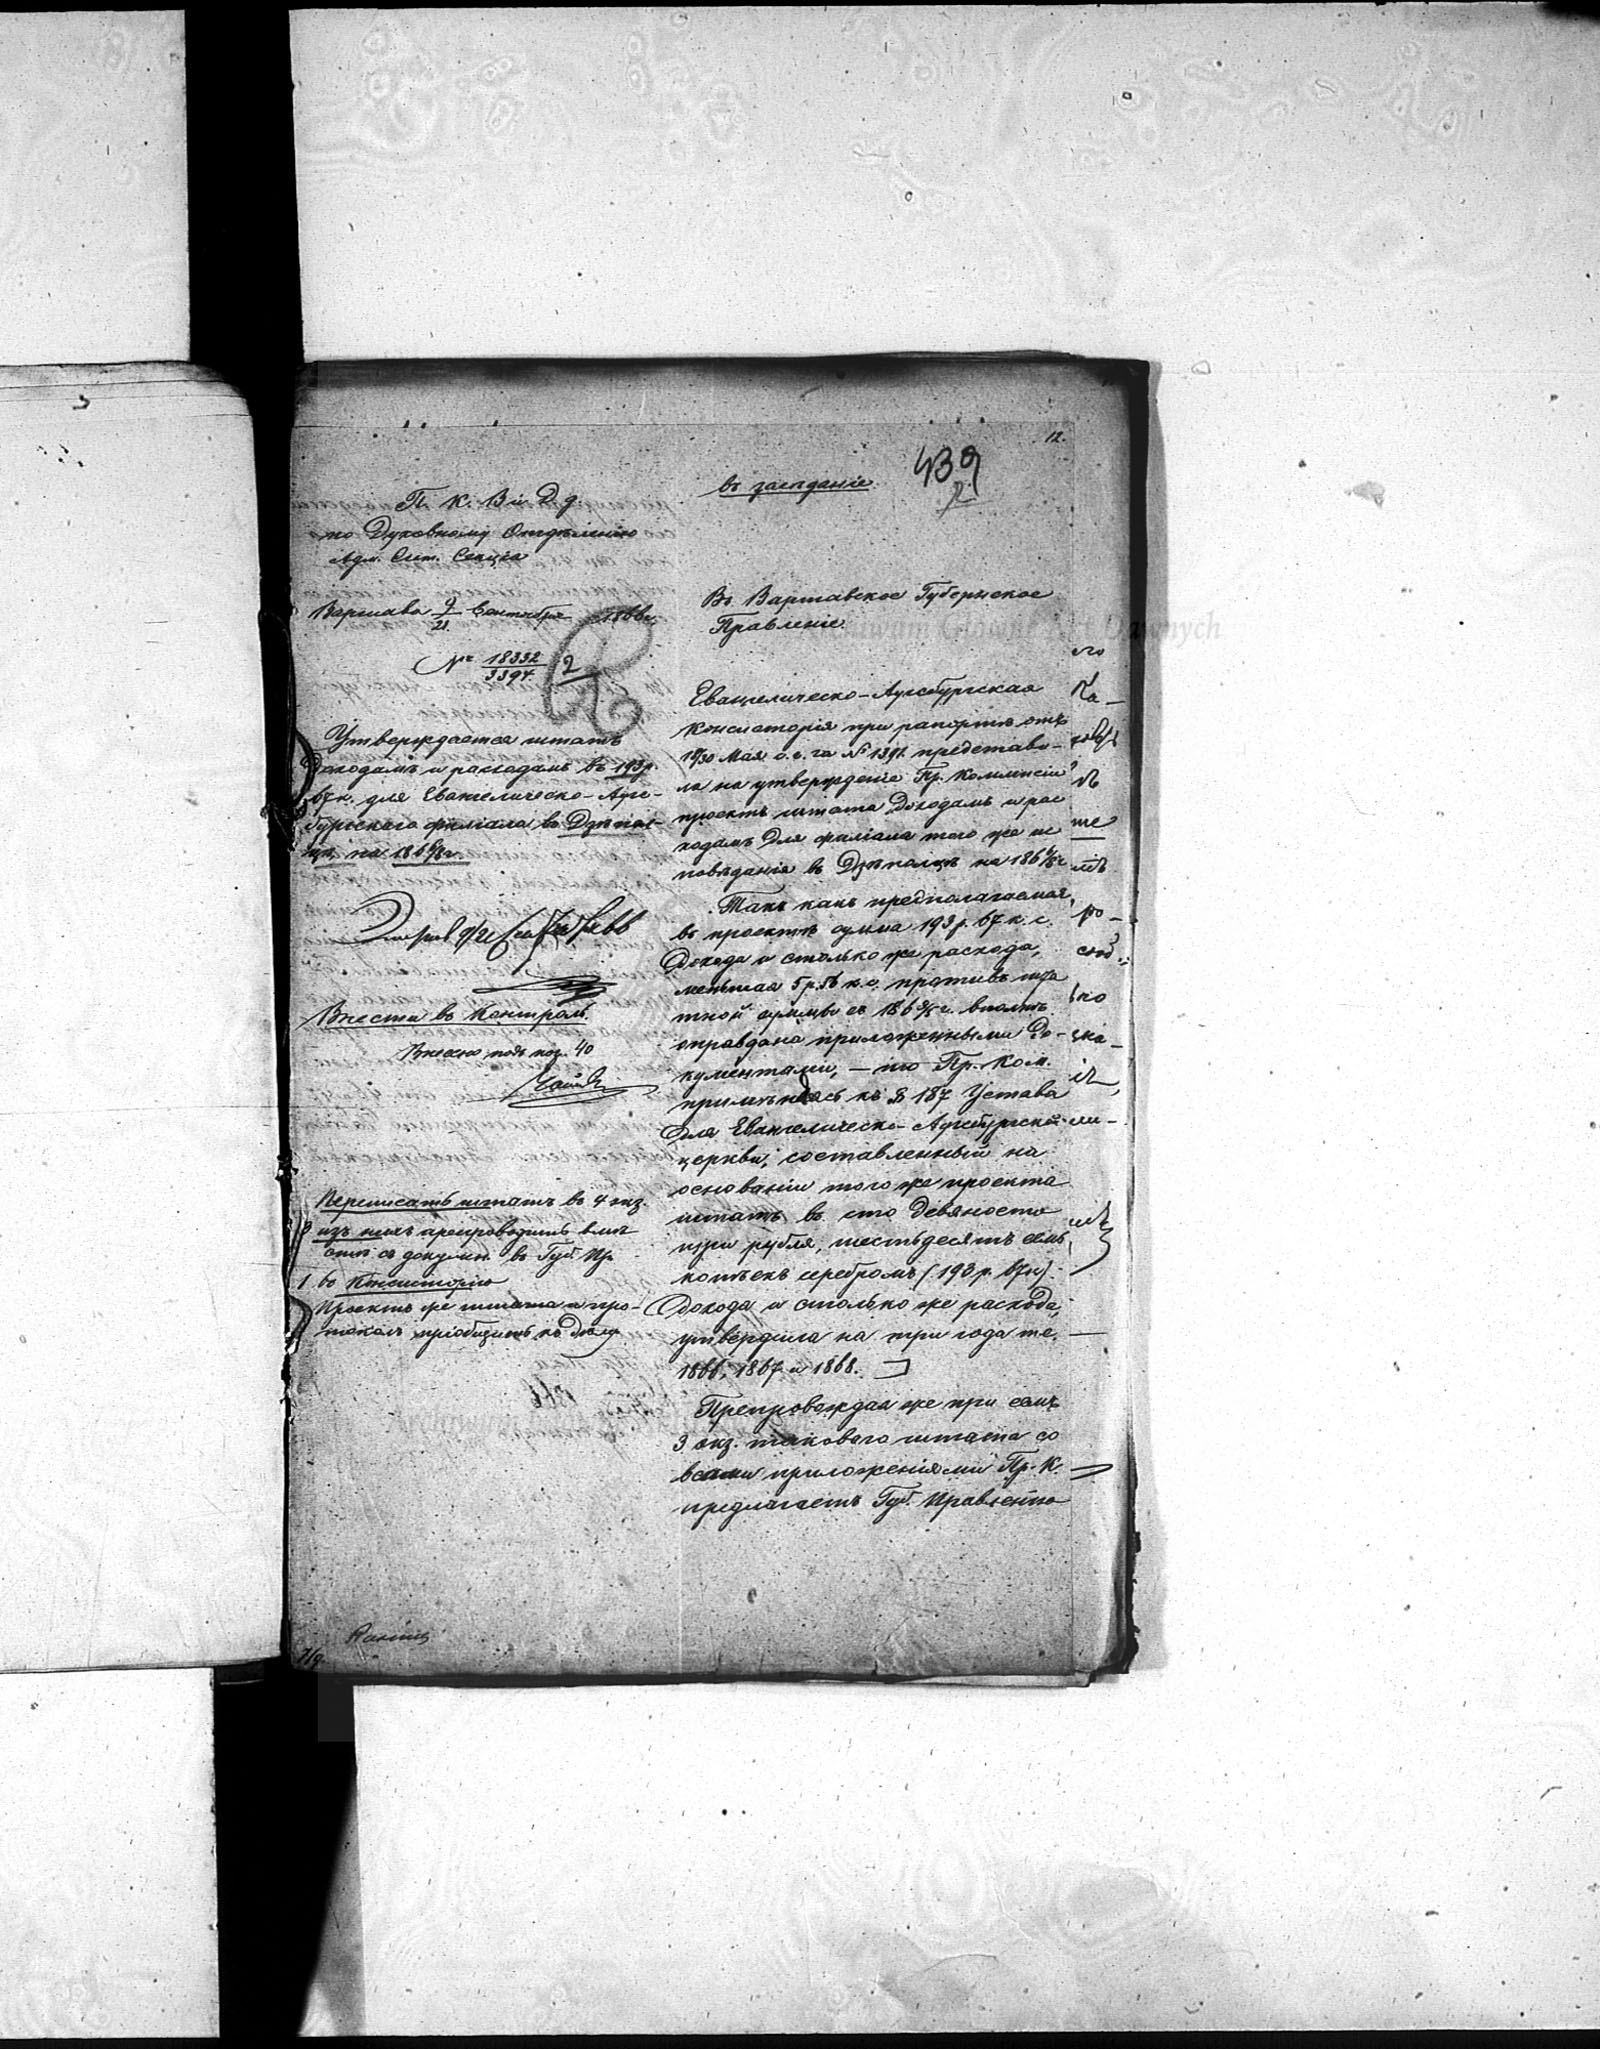 12.
439
2
въ заседаніе.
П. К. В. и Д. д.
по Духовному Отдѣленію
Адм. Сит. Секція
Варшава 9/21 Сентября 1866 г.
№ 18332/3394 2
Утверждается штатъ
доходамъ и расходамъ въ 193 р.
67 к. для Евангелическо-Аугс-
бургскаго филіала въ
на 186 6/8 г.
Внести въ Контроль.
Внесено подъ поз. 40
Переписать штатъ въ 4 экз.
3 изъ нихъ препроводить вмѣ
стѣ съ докумен. въ Губ. Пр.
1. въ Консисторію
Проектъ же штата и про-
токолъ пріобщить къ дѣлу
7/9
Въ Варшавское Губернское
Правленіе.
Евангелическо-Аугсбургская
Консисторія при рапортѣ отъ
18/30 Мая с. г. за № 1391. представи-
ла на утвержденіе Пр. Коммисіи
проектъ штата доходамъ и рас
ходамъ для филіала того же ис
повѣданія въ на 186 6/8 г.
Такъ какъ предполагаемая
въ проектѣ сумма 193 р. 67 к. с.
дохода и столько же расхода,
меньшая 5 р. 56 к. с. противъ шта
тной суммы съ 186 3/5 г. вполнѣ
оправдана приложенными до-
кументами, — то Пр. Ком.
примѣняясь къ § 187 Устава
для Евангелическо-Аугсбургской
церкви, составленный на
основаніи того же проекта
штатъ въ сто девяносто
три рубля, шестьдесятъ семь
копѣекъ серебромъ (193 р. 67 к.)
дохода и столько же расхода,
утвердила на три года т. е.
1866, 1867 и 1868.
Препровождая же при семъ
3 экз. таковаго штата со
всѣми приложеніями Пр. К.
предлагаетъ Губ. Правленію
Archiwum Główne Akt Dawnych